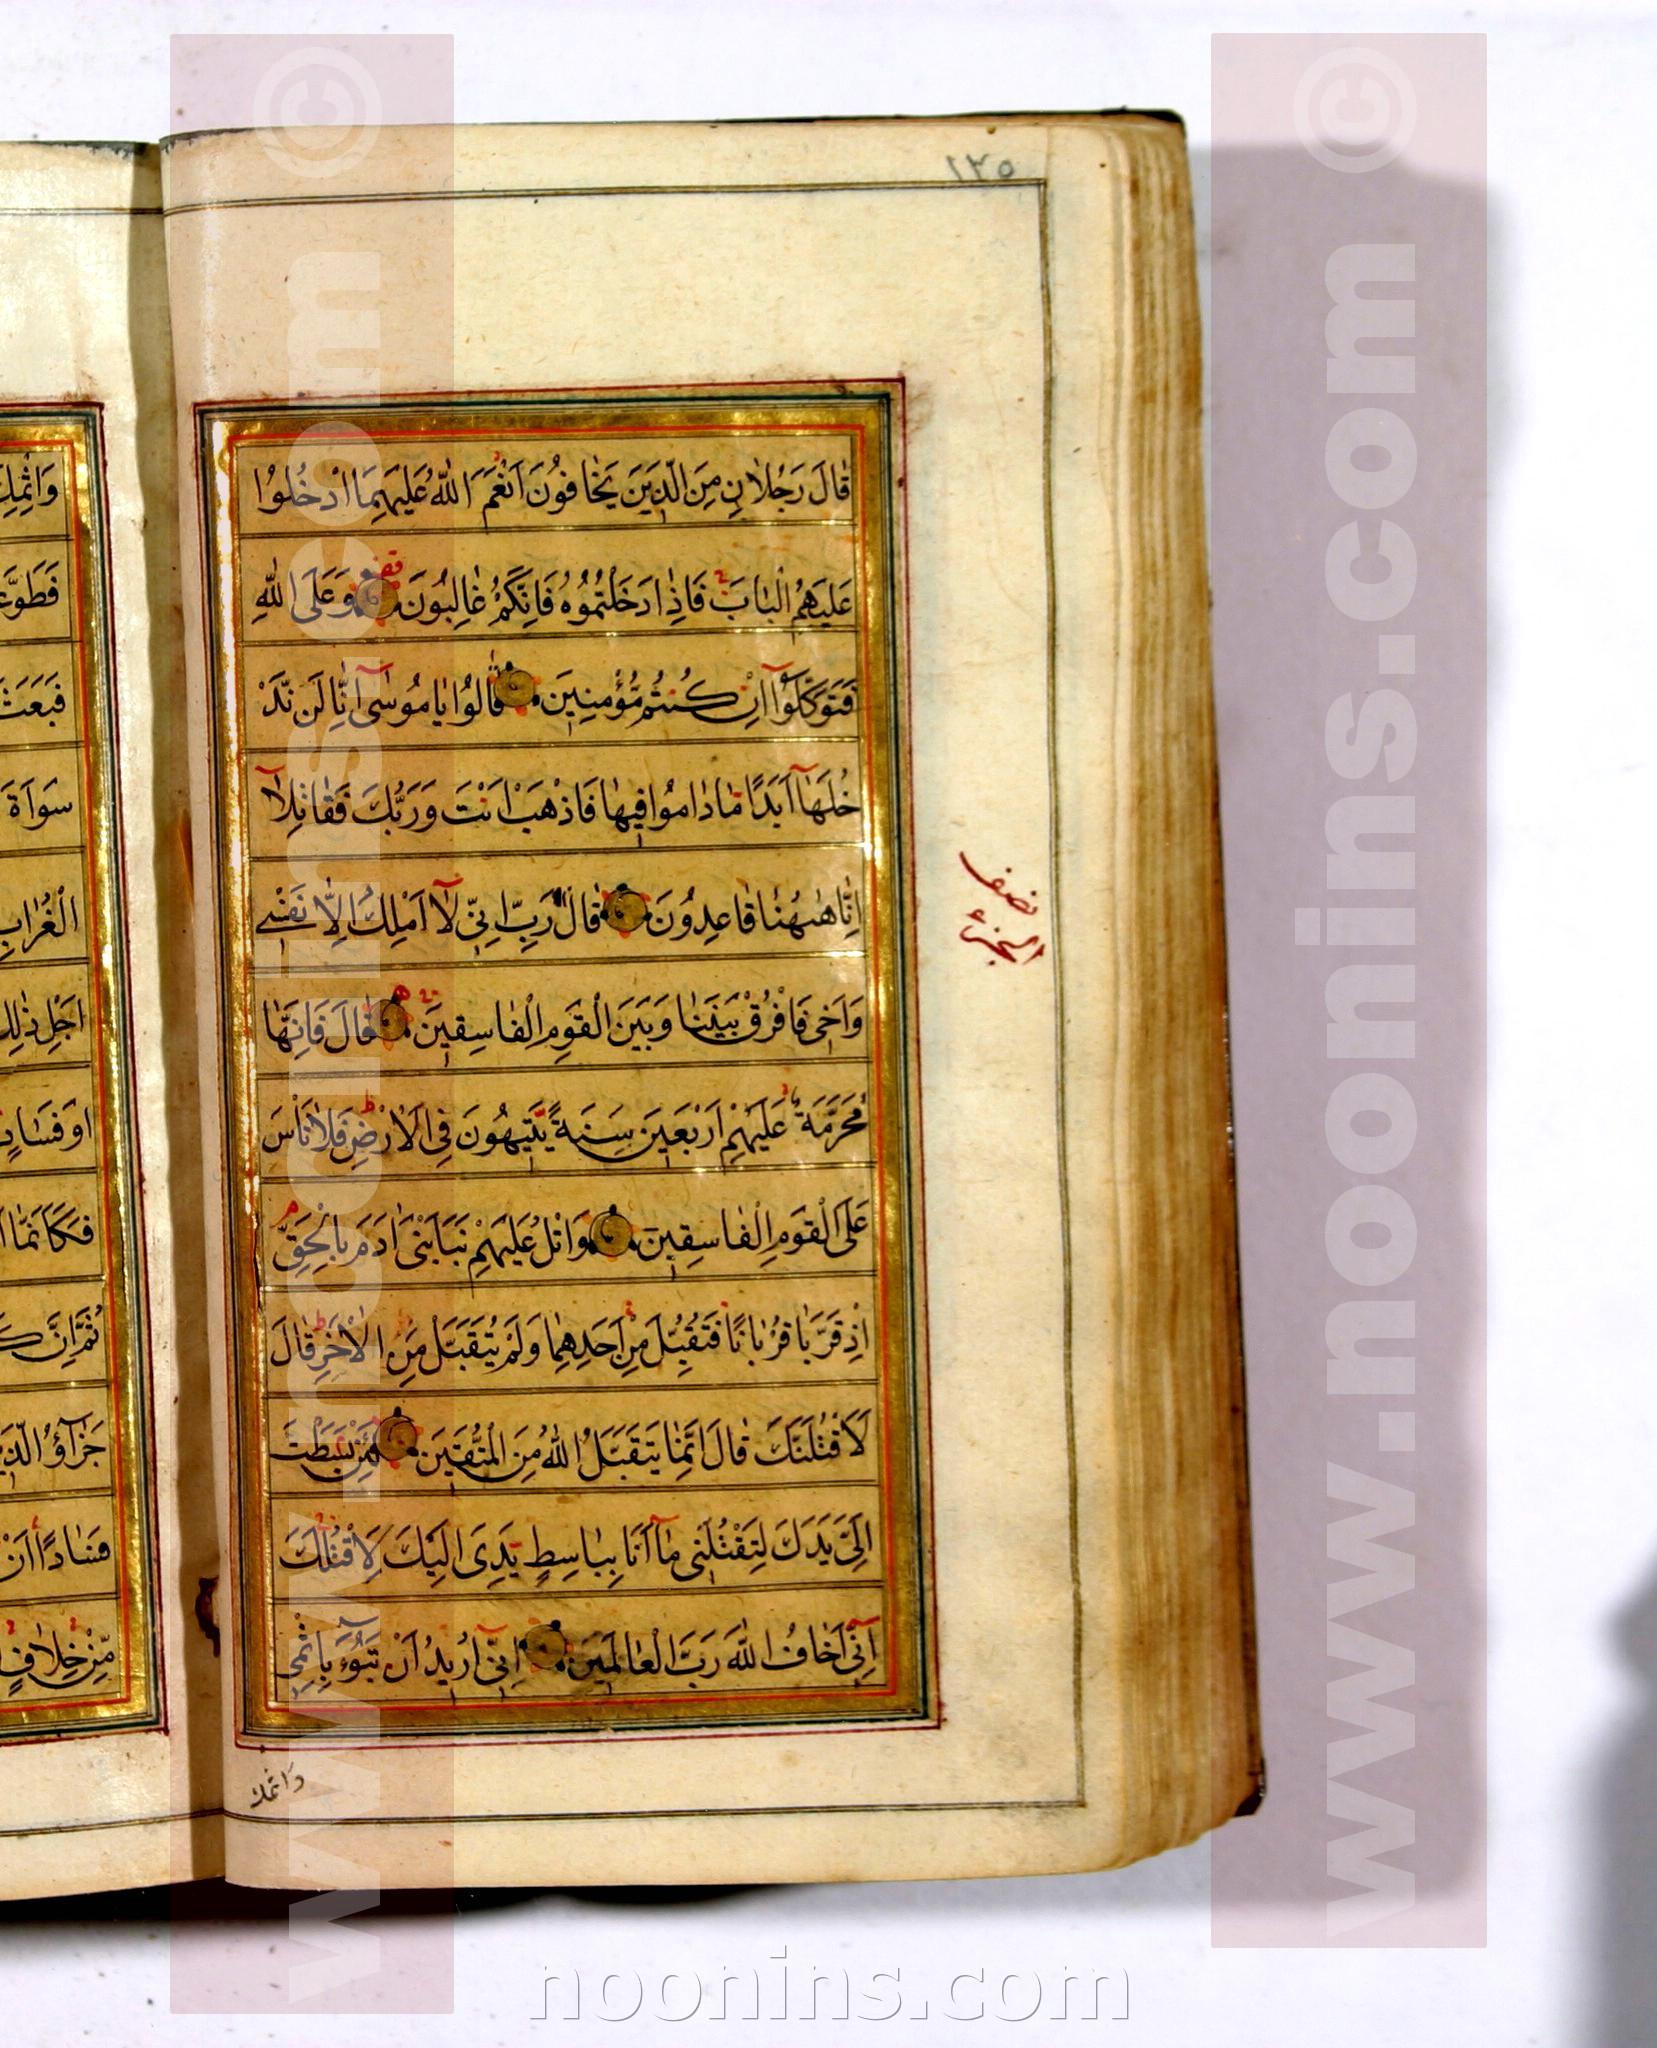 ١٢٥
قٰالَ رَجُلٰانِ مِنَ الَّذِينَ يَخٰافُونَ اَنْعَمَ اللّٰهُ عَلَيْهِمَا ادْخُلُوا
عَلَيْهِمُ الْبٰابَ فَاِذٰا دَخَلْتُمُوهُ فَاِنَّكُمْ غٰالِبُونَ وَعَلَى اللّٰهِ
فَتَوَكَّلُوٓا اِنْ كُنْتُمْ مُؤْمِنِينَ قٰالُوا يٰا مُوسٰٓى اِنّٰا لَنْ نَدْ
خُلَهٰٓا اَبَدًا مٰا دٰامُوا فِيهٰا فَاذْهَبْ اَنْتَ وَرَبُّكَ فَقٰاتِلٰآ
اِنّٰا هٰهُنٰا قٰاعِدُونَ قٰالَ رَبِّ اِنِّى لٰٓا اَمْلِكُ اِلّٰا نَفْسِى
وَاَخِى فَافْرُقْ بَيْنَنٰا وَبَيْنَ الْقَوْمِ الْفٰاسِقِينَ قٰالَ فَاِنَّهٰا
مُحَرَّمَةٌ عَلَيْهِمْ اَرْبَعِينَ سَنَةً يَتِيهُونَ فِى الْاَرْضِ فَلٰا تَأْسَ
عَلَى الْقَوْمِ الْفٰاسِقِينَ وَاتْلُ عَلَيْهِمْ نَبَاَ ابْنَىْ اٰدَمَ بِالْحَقِّ
اِذْ قَرَّبٰا قُرْبٰانًا فَتُقُبِّلَ مِنْ اَحَدِهِمٰا وَلَمْ يُتَقَبَّلْ مِنَ الْاٰخَرِ قٰالَ
لَاَقْتُلَنَّكَ قٰالَ اِنَّمٰا يَتَقَبَّلُ اللّٰهُ مِنَ الْمُتَّقِينَ لَئِنْ بَسَطْتَ
اِلَىَّ يَدَكَ لِتَقْتُلَنِى مٰٓا اَنَا بِبٰاسِطٍ يَدِىَ اِلَيْكَ لِاَقْتُلَكَ
اِنِّىٓ اَخٰافُ اللّٰهَ رَبَّ الْعٰالَمِينَ اِنِّىٓ اُرِيدُ اَنْ تَبُوٓءَ بِاِثْمِى
نصف
الجزء
واثمك
وَاثْمِكَ
فَطَوَّعَ
فَبَعَثَ
سَوْاَةَ
الْغُرٰابِ
اَجْلِ ذٰلِكَ
اَوْ فَسٰادٍ
فَكَاَنَّمٰا
ثُمَّ اِنَّ
جَزٰٓاؤُ الَّذِينَ
فَسٰادًا اَنْ
مِنْ خِلٰافٍ
www.noonins.com ©
www.noonins.com ©
noonins.com